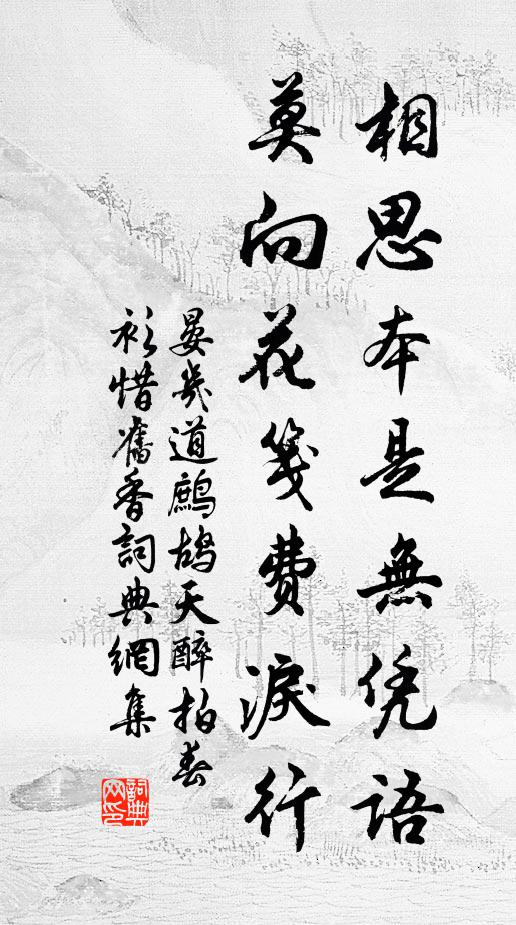 相思本是無凭語
莫向花箋費淚行
晏幾道鷓鴣天醉拍春
衫惜舊香詞典網集
詞典网印